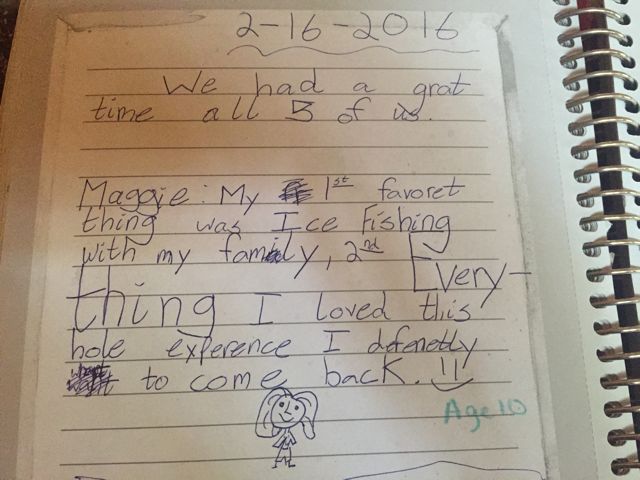 2-16-2016
We had a grat
time all 5 of us.
Maggie: My 1st favoret
thing was Ice Fishing
with my family, 2nd Every-
thing I loved this
hole experence I defenetly
to come back.
Age 10